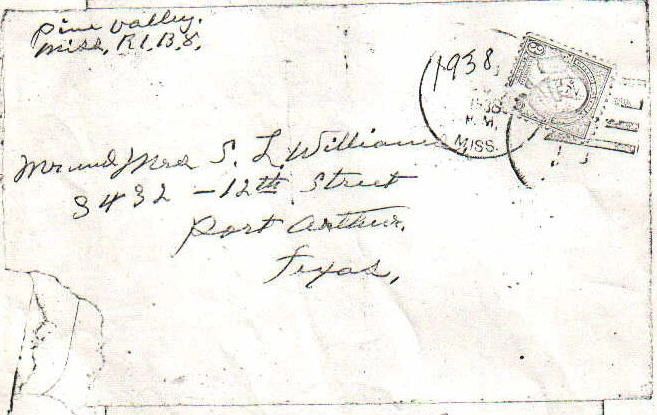 Pine Valley.
Miss, R1.B.8.
1938
1938
P.M.
MISS.
Mr and Mrs S. L. Williams
3432 - 12th Street
Port Arthur.
Texas,